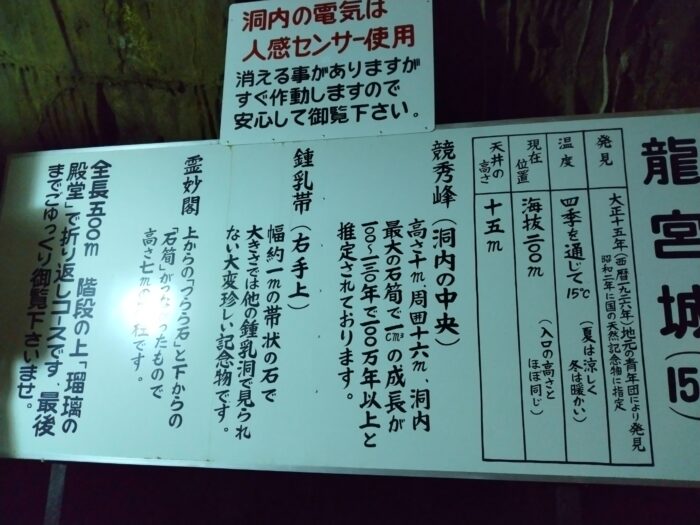 洞内の電気は
人感センサー使用
消える事がありますが
すぐ作動しますので
安心して御覧下さい。
龍宮城(15)
発見
大正十五年(西暦一九二六年)地元の青年団により発見
昭和二年に国の天然記念物に指定
温度
四季を通じて15℃
(夏は涼しく
冬は暖かい)
現在位置
海抜二〇〇m
(入口の高さと
ほぼ同じ)
天井の高さ
十五m
競秀峰(洞内の中央)
高さ十m、周囲十六m、洞内
最大の石筍で1cm³の成長が
一〇〇〜一三〇年で二〇〇万年以上と
推定されております。
鍾乳帯(右手上)
幅約一mの帯状の石で
大きさでは他の鍾乳洞で見られ
ない大変珍しい記念物です。
霊妙閣
上からの「つらら石」と下からの
「石筍」がつながったもので
高さ七mの柱です。
全長五〇〇m 階段の上「瑠璃の
殿堂」で折り返しコースです。最後
までごゆっくり御覧下さいませ。